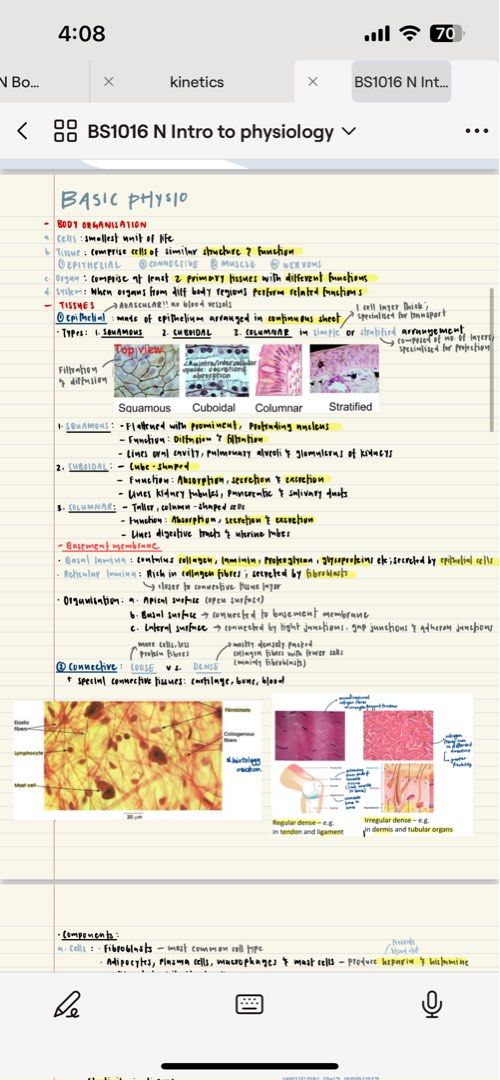 4:08
70
N Bo...
× kinetics
× BS1016 N Int...
BS1016 N Intro to physiology
BASIC PHYSIO
- BODY ORGANISATION
a. Cells: smallest unit of life
b. Tissue: comprise cells of similar structure & function
① EPITHELIAL ② CONNECTIVE ③ MUSCLE ④ NERVOUS
c. Organ: comprise at least 2 primary tissues with different functions
d. System: When organs from diff body regions perform related functions
- TISSUES
→ AVASCULAR!! no blood vessels
1 cell layer thick; specialised for transport
① Epithelial: made of epithelium arranged in continuous sheet
· Types: 1. SQUAMOUS 2. CUBOIDAL 3. COLUMNAR in simple or stratified arrangement
composed of no. of layers; specialised for protection
Filtration & diffusion
Top view
absorption
Squamous Cuboidal Columnar Stratified
1. SQUAMOUS: - Flattened with prominent, protruding nucleus
- Function: Diffusion & filtration
- Lines oral cavity, pulmonary alveoli & glomerulus of kidneys
2. CUBOIDAL: - Cube-shaped
- Function: Absorption, secretion & excretion
- Lines kidney tubules, pancreatic & salivary ducts
3. COLUMNAR: - Taller, column-shaped cells
- Function: Absorption, secretion & excretion
- Lines digestive tracts & uterine tubes
- Basement membrane
· Basal lamina: contains collagen, laminin, proteoglycan, glycoproteins etc; secreted by epithelial cells
· Reticular lamina: Rich in collagen fibres; secreted by fibroblasts
→ closer to connective tissue layer
· Organisation: a. Apical surface (open surface)
b. Basal surface → connected to basement membrane
c. Lateral surface → connected by tight junctions, gap junctions & adheren junctions
more cells, less protein fibres
mostly densely packed collagen fibres with fewer cells (mainly fibroblasts)
② Connective: LOOSE v.s. DENSE
+ special connective tissues: cartilage, bone, blood
Elastic fibers
Lymphocyte
Mast cell
Fibroblasts
Collagenous fibers
20 µm
Regular dense – e.g. in tendon and ligament
Irregular dense – e.g. in dermis and tubular organs
· Components:
prevents blood clot
a. Cells: · Fibroblasts — most common cell type
· Adipocytes, plasma cells, macrophages & mast cells — produce heparin & histamine